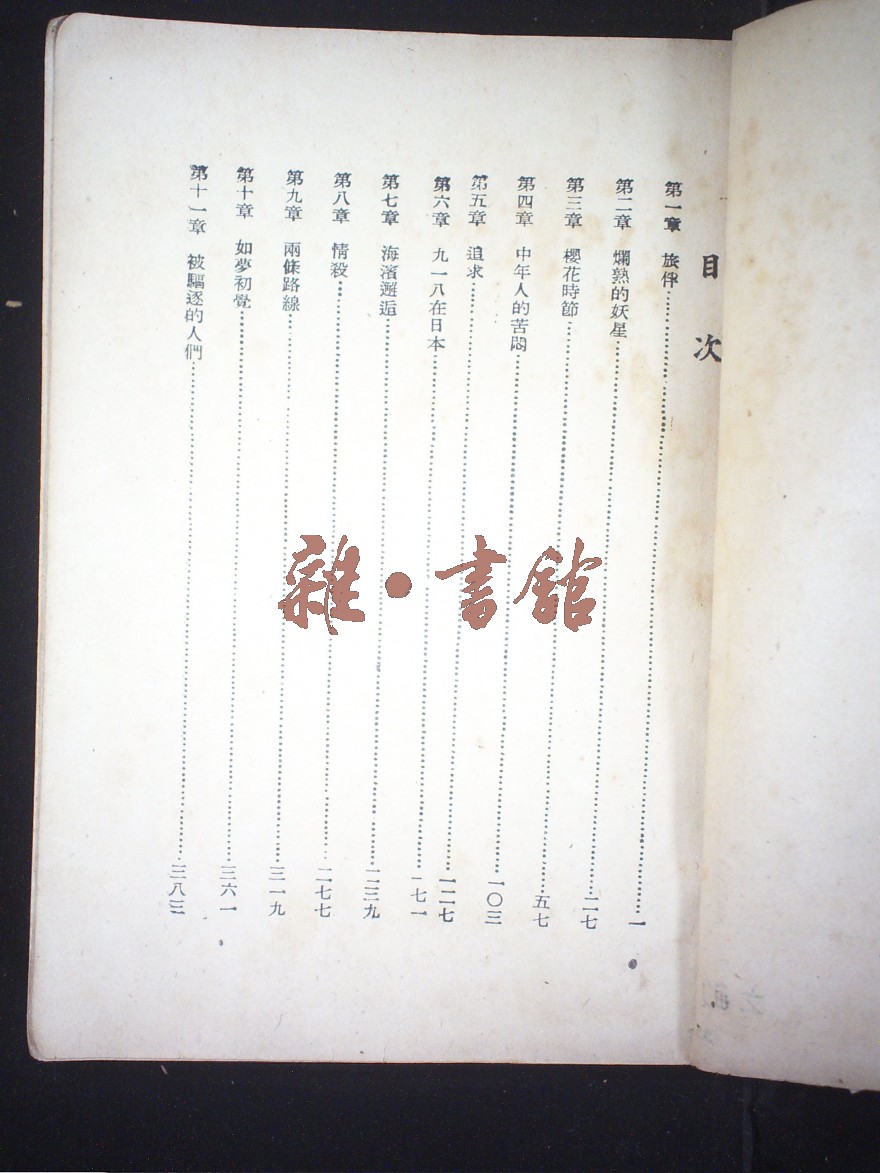 目次
第一章 旅伴……一
第二章 爛熟的妖星……二七
第三章 櫻花時節……五七
第四章 中年人的苦悶……一〇三
第五章 追求……一二七
第六章 九一八在日本……一七一
第七章 海濱邂逅……二三九
第八章 情殺……二七七
第九章 兩條路線……三一九
第十章 如夢初覺……三六一
第十一章 被驅逐的人們……三八三
雜·書館